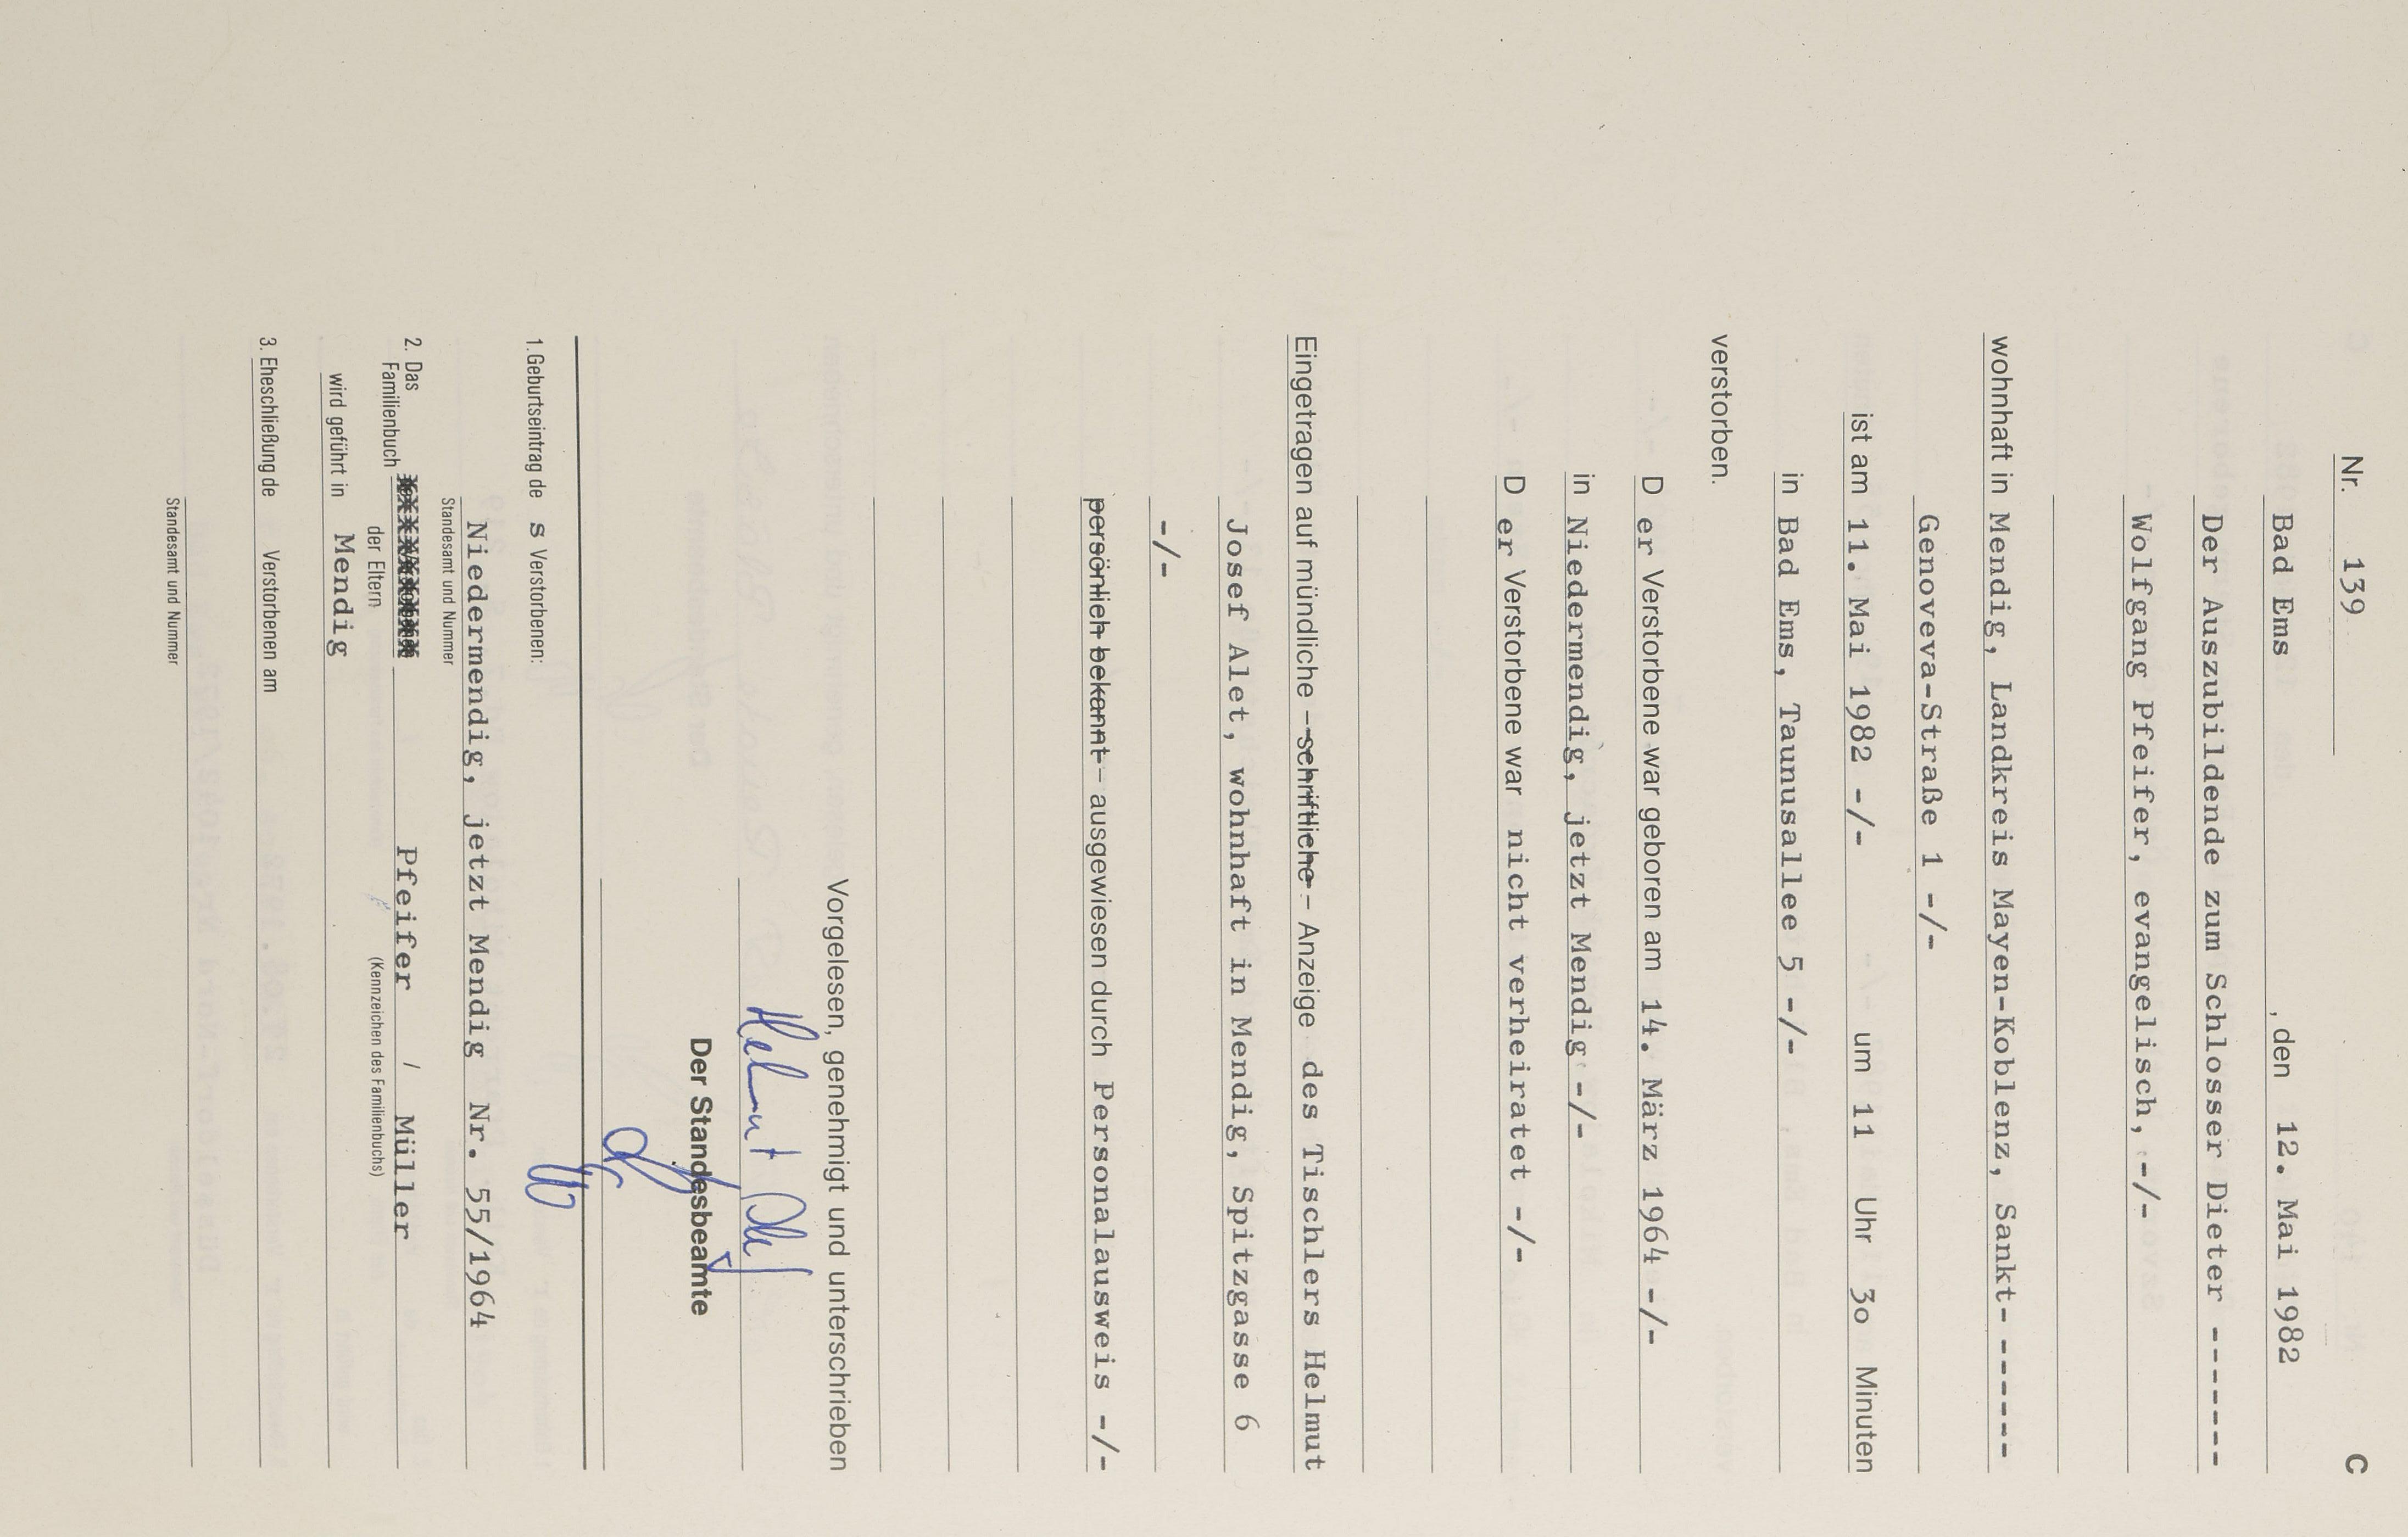 Nr. 139 C
Bad Ems, den 12. Mai 1982
Der Auszubildende zum Schlosser Dieter -------
Wolfgang Pfeifer, evangelisch, -/-
wohnhaft in Mendig, Landkreis Mayen-Koblenz, Sankt- ------
Genoveva-Straße 1 -/-
ist am 11. Mai 1982 -/- um 11 Uhr 3o Minuten
in Bad Ems, Taunusallee 5 -/-
verstorben.
D er Verstorbene war geboren am 14. März 1964 -/-
in Niedermendig, jetzt Mendig -/-
D er Verstorbene war nicht verheiratet -/-
Eingetragen auf mündliche – schriftliche – Anzeige des Tischlers Helmut
Josef Alet, wohnhaft in Mendig, Spitzgasse 6
-/-
persönlich bekannt – ausgewiesen durch Personalausweis -/-
Vorgelesen, genehmigt und unterschrieben
Helmut Alet
Der Standesbeamte
1. Geburtseintrag de s Verstorbenen:
Niedermendig, jetzt Mendig Nr. 55/1964
Standesamt und Nummer
2. Das Familienbuch der Eltern Pfeifer / Müller
(Kennzeichen des Familienbuchs)
wird geführt in Mendig
3. Eheschließung de Verstorbenen am
Standesamt und Nummer